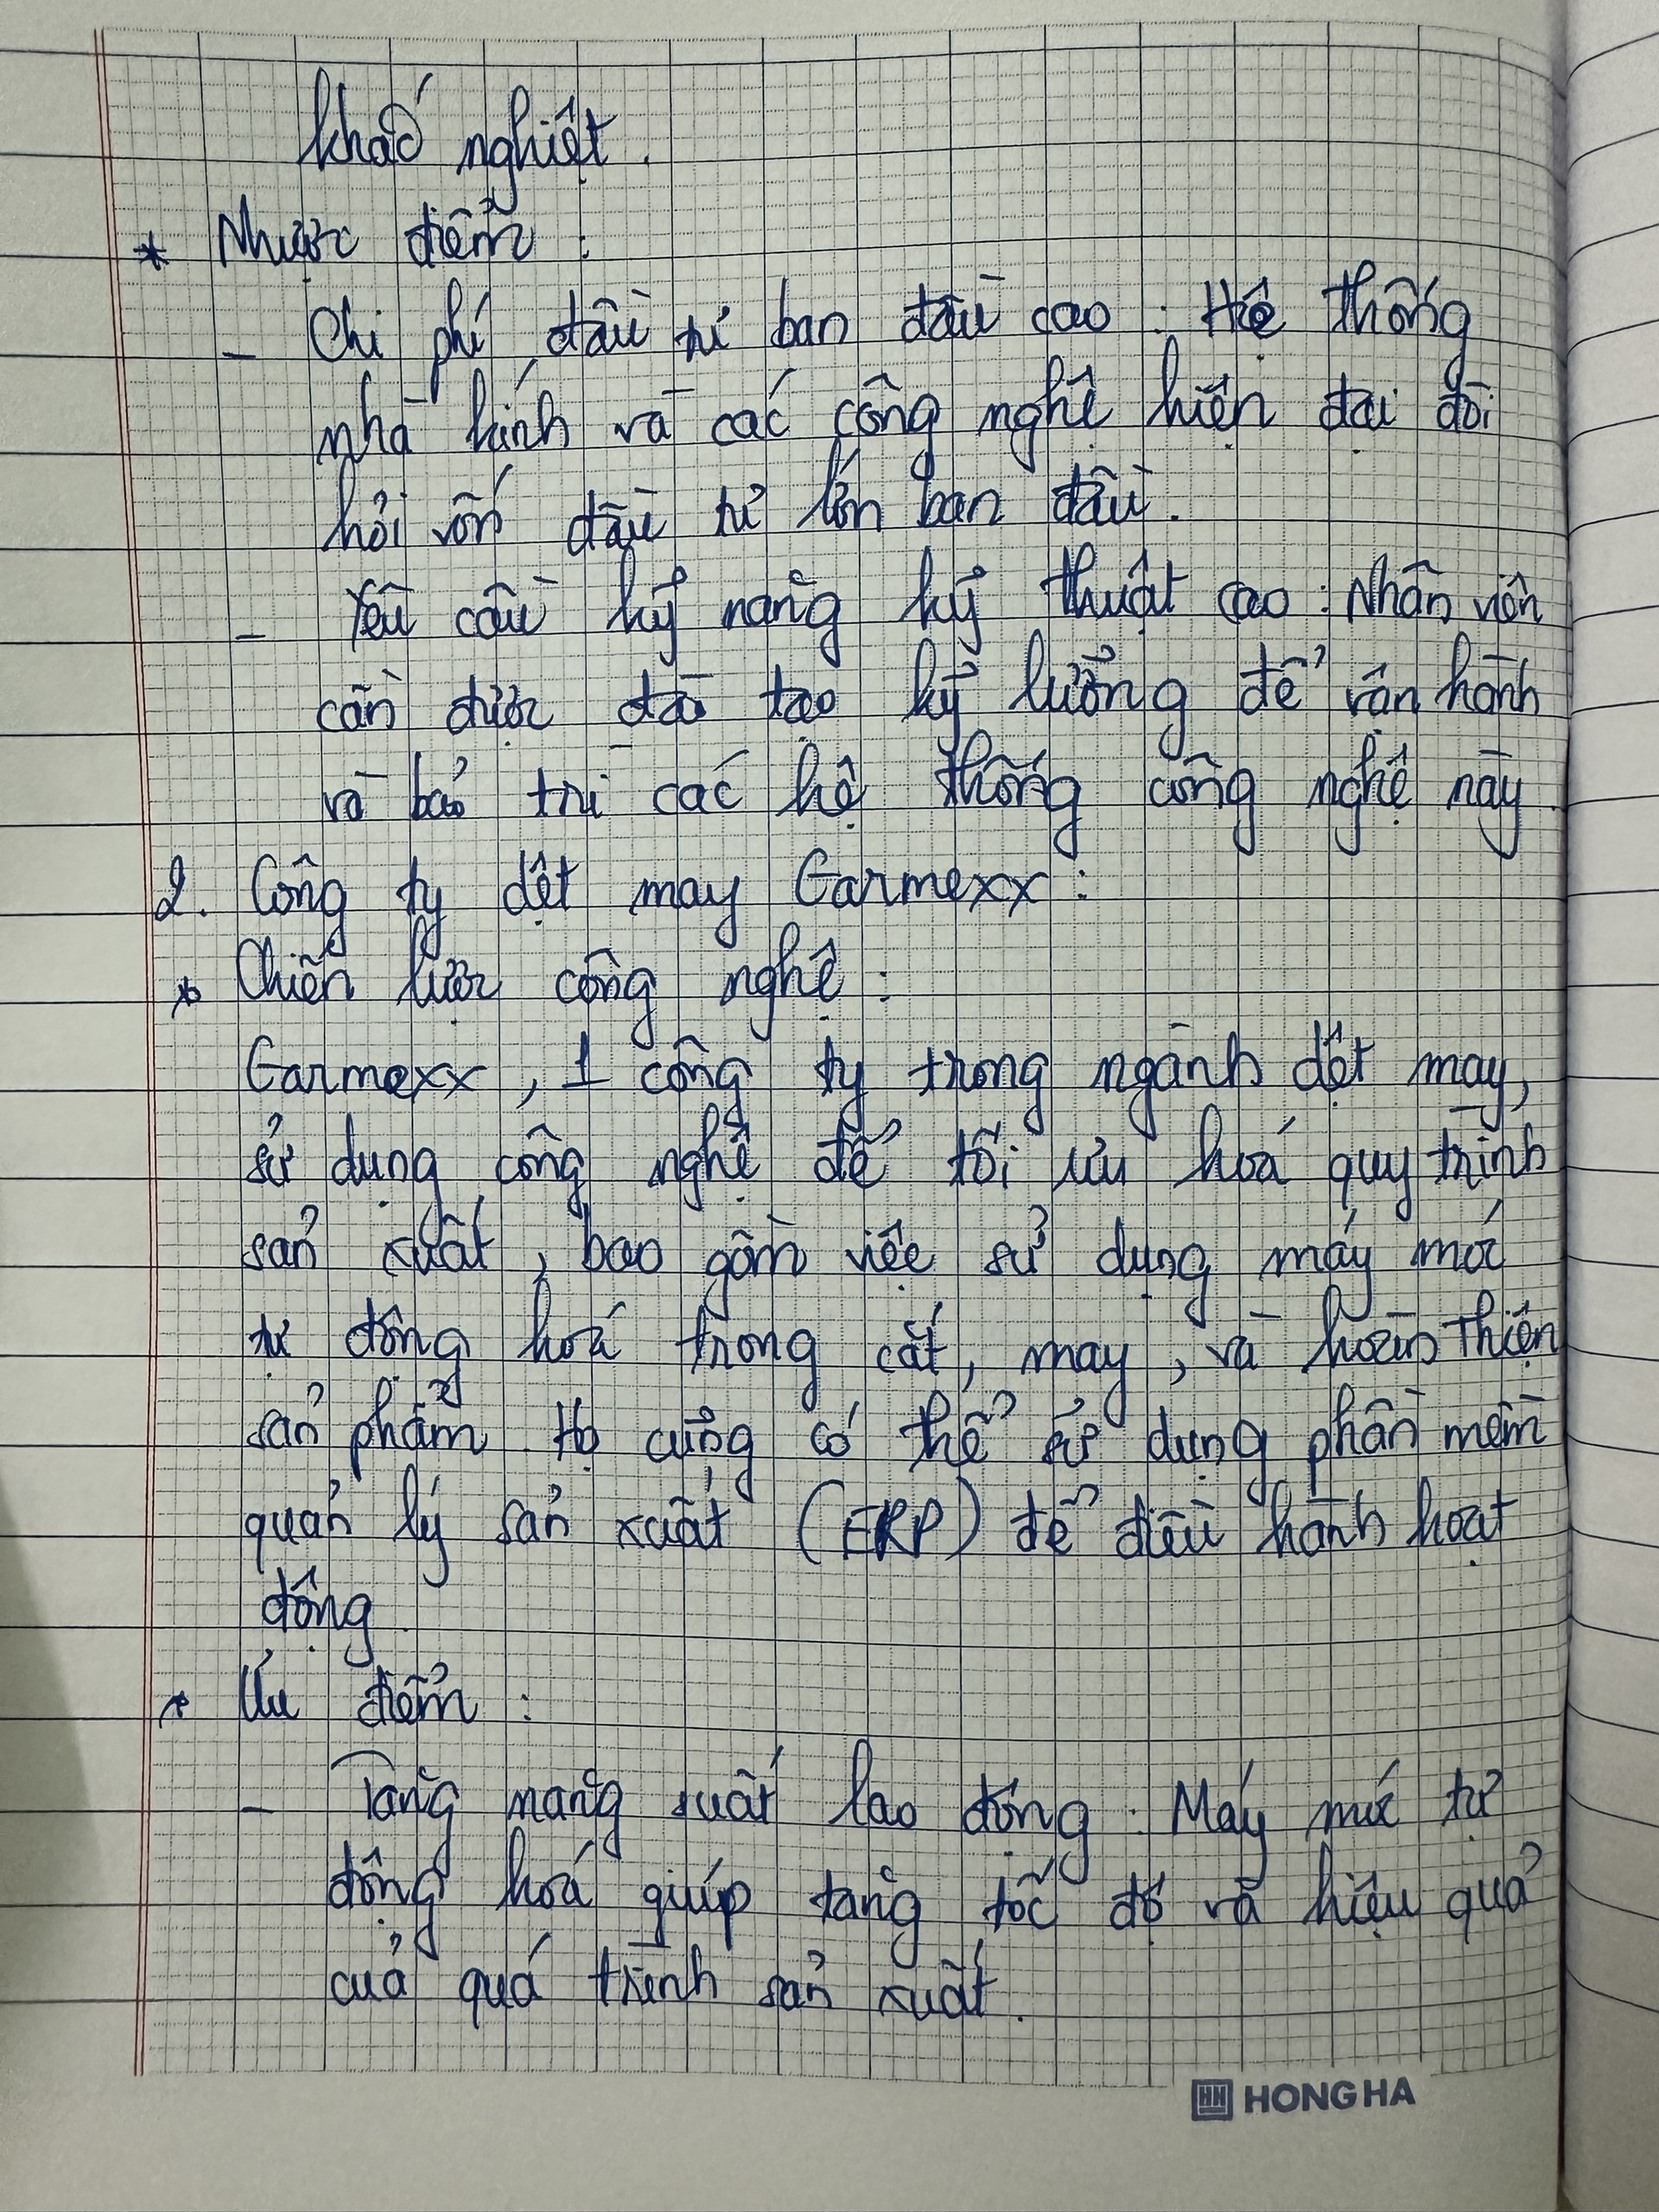 khắc nghiệt.
* Nhược điểm :
- Chi phí đầu tư ban đầu cao : Hệ thống
nhà kính và các công nghệ hiện đại đòi
hỏi vốn đầu tư lớn ban đầu.
- Yêu cầu kỹ năng kỹ thuật cao : Nhân viên
cần được đào tạo kỹ lưỡng để vận hành
và bảo trì các hệ thống công nghệ này.
2. Công ty dệt may Garmexx :
* Chiến lược công nghệ :
Garmexx, 1 công ty trong ngành dệt may,
sử dụng công nghệ để tối ưu hoá quy trình
sản xuất, bao gồm việc sử dụng máy móc
tự động hoá trong cắt, may, và hoàn thiện
sản phẩm. Họ cũng có thể sử dụng phần mềm
quản lý sản xuất (ERP) để điều hành hoạt
động.
* Ưu điểm :
- Tăng năng suất lao động : Máy móc tự
động hoá giúp tăng tốc độ và hiệu quả
của quá trình sản xuất.
HONG HA